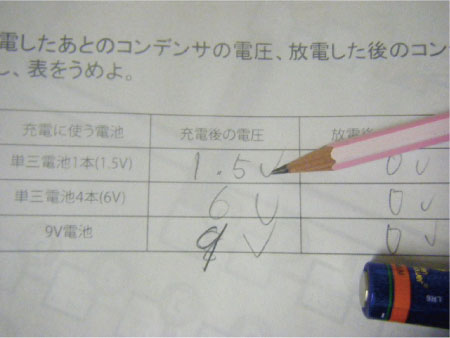 電したあとのコンデンサの電圧、放電した後のコン
し、表をうめよ。
充電に使う電池 充電後の電圧 放電
単三電池1本(1.5V) 1.5V 0V
単三電池4本(6V) 6V 0V
9V電池 9V 0V
LR6